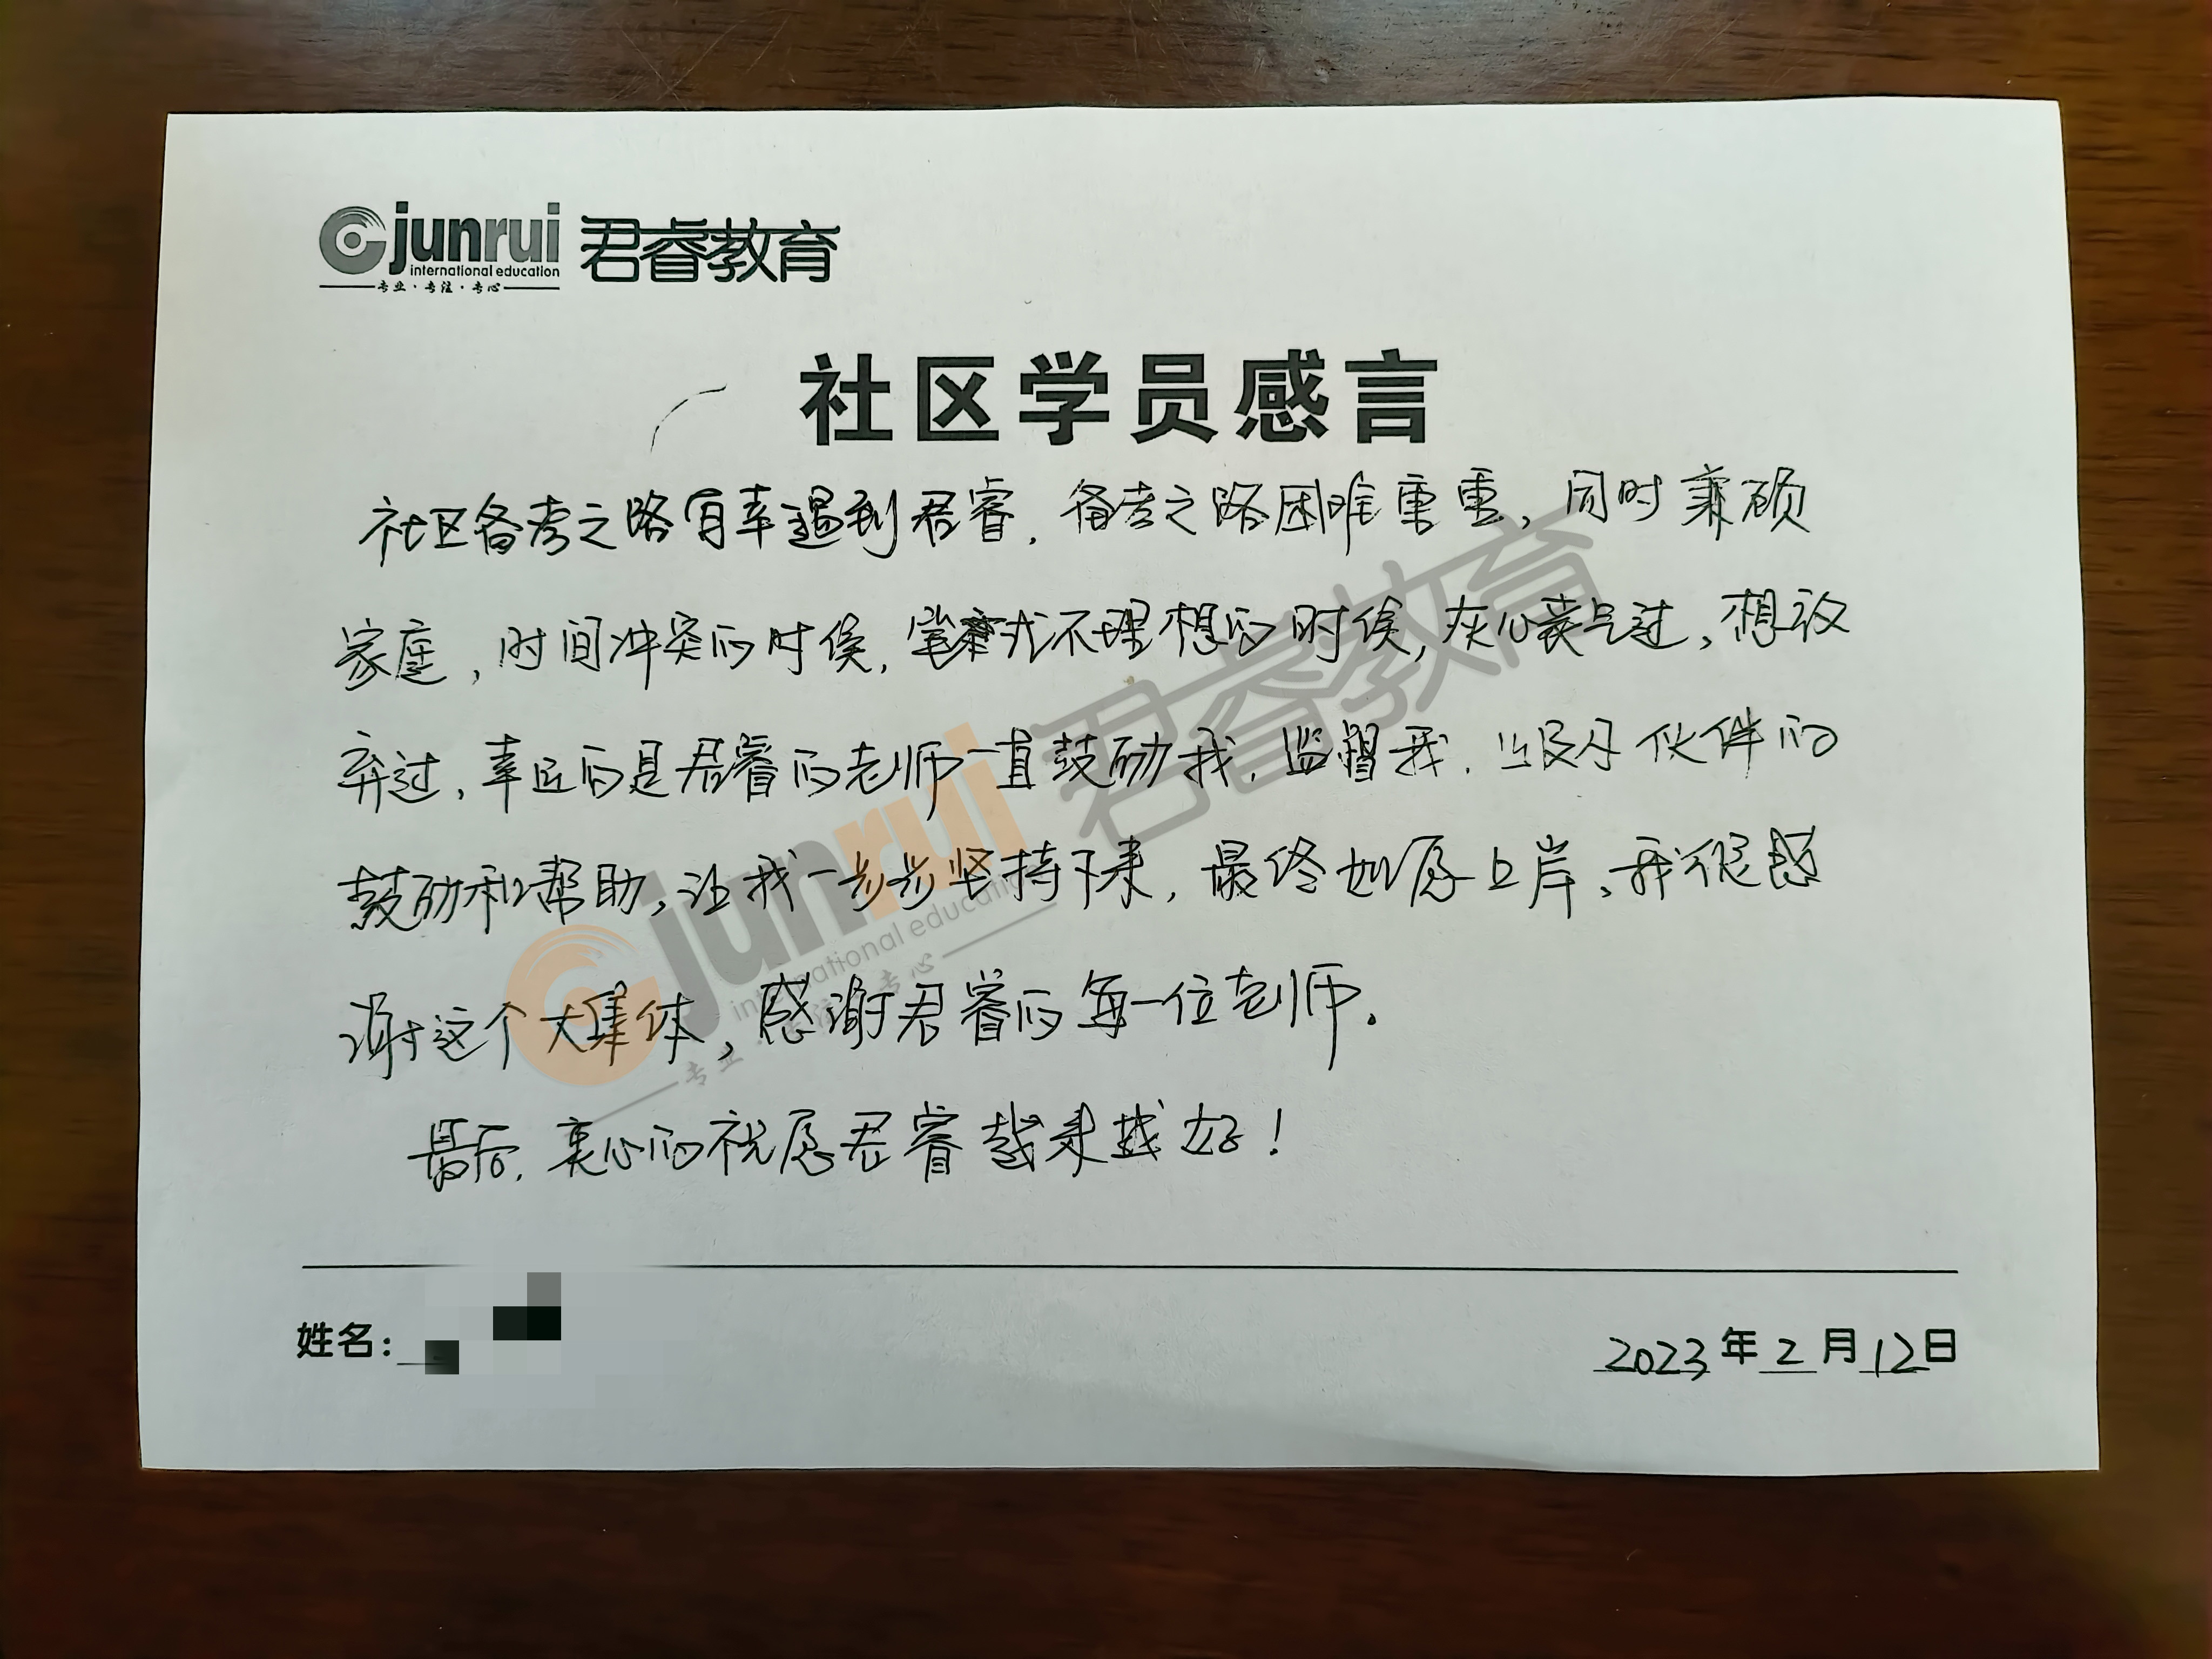 junrui 君睿教育
international education
专业·专注·专心
社区学员感言
社区备考之路有幸遇到君睿,备考之路困难重重,同时兼顾
家庭,时间冲突的时候,笔试不理想的时候,灰心丧气过,想放
弃过,幸运的是君睿的老师一直鼓励我,监督我,以及小伙伴的
鼓励和帮助,让我一步步坚持下来,最终如愿上岸,我很感
谢这个大集体,感谢君睿的每一位老师。
最后,衷心的祝愿君睿越来越好!
姓名:
2023年2月12日
junrui 君睿教育
international education
专业·专注·专心